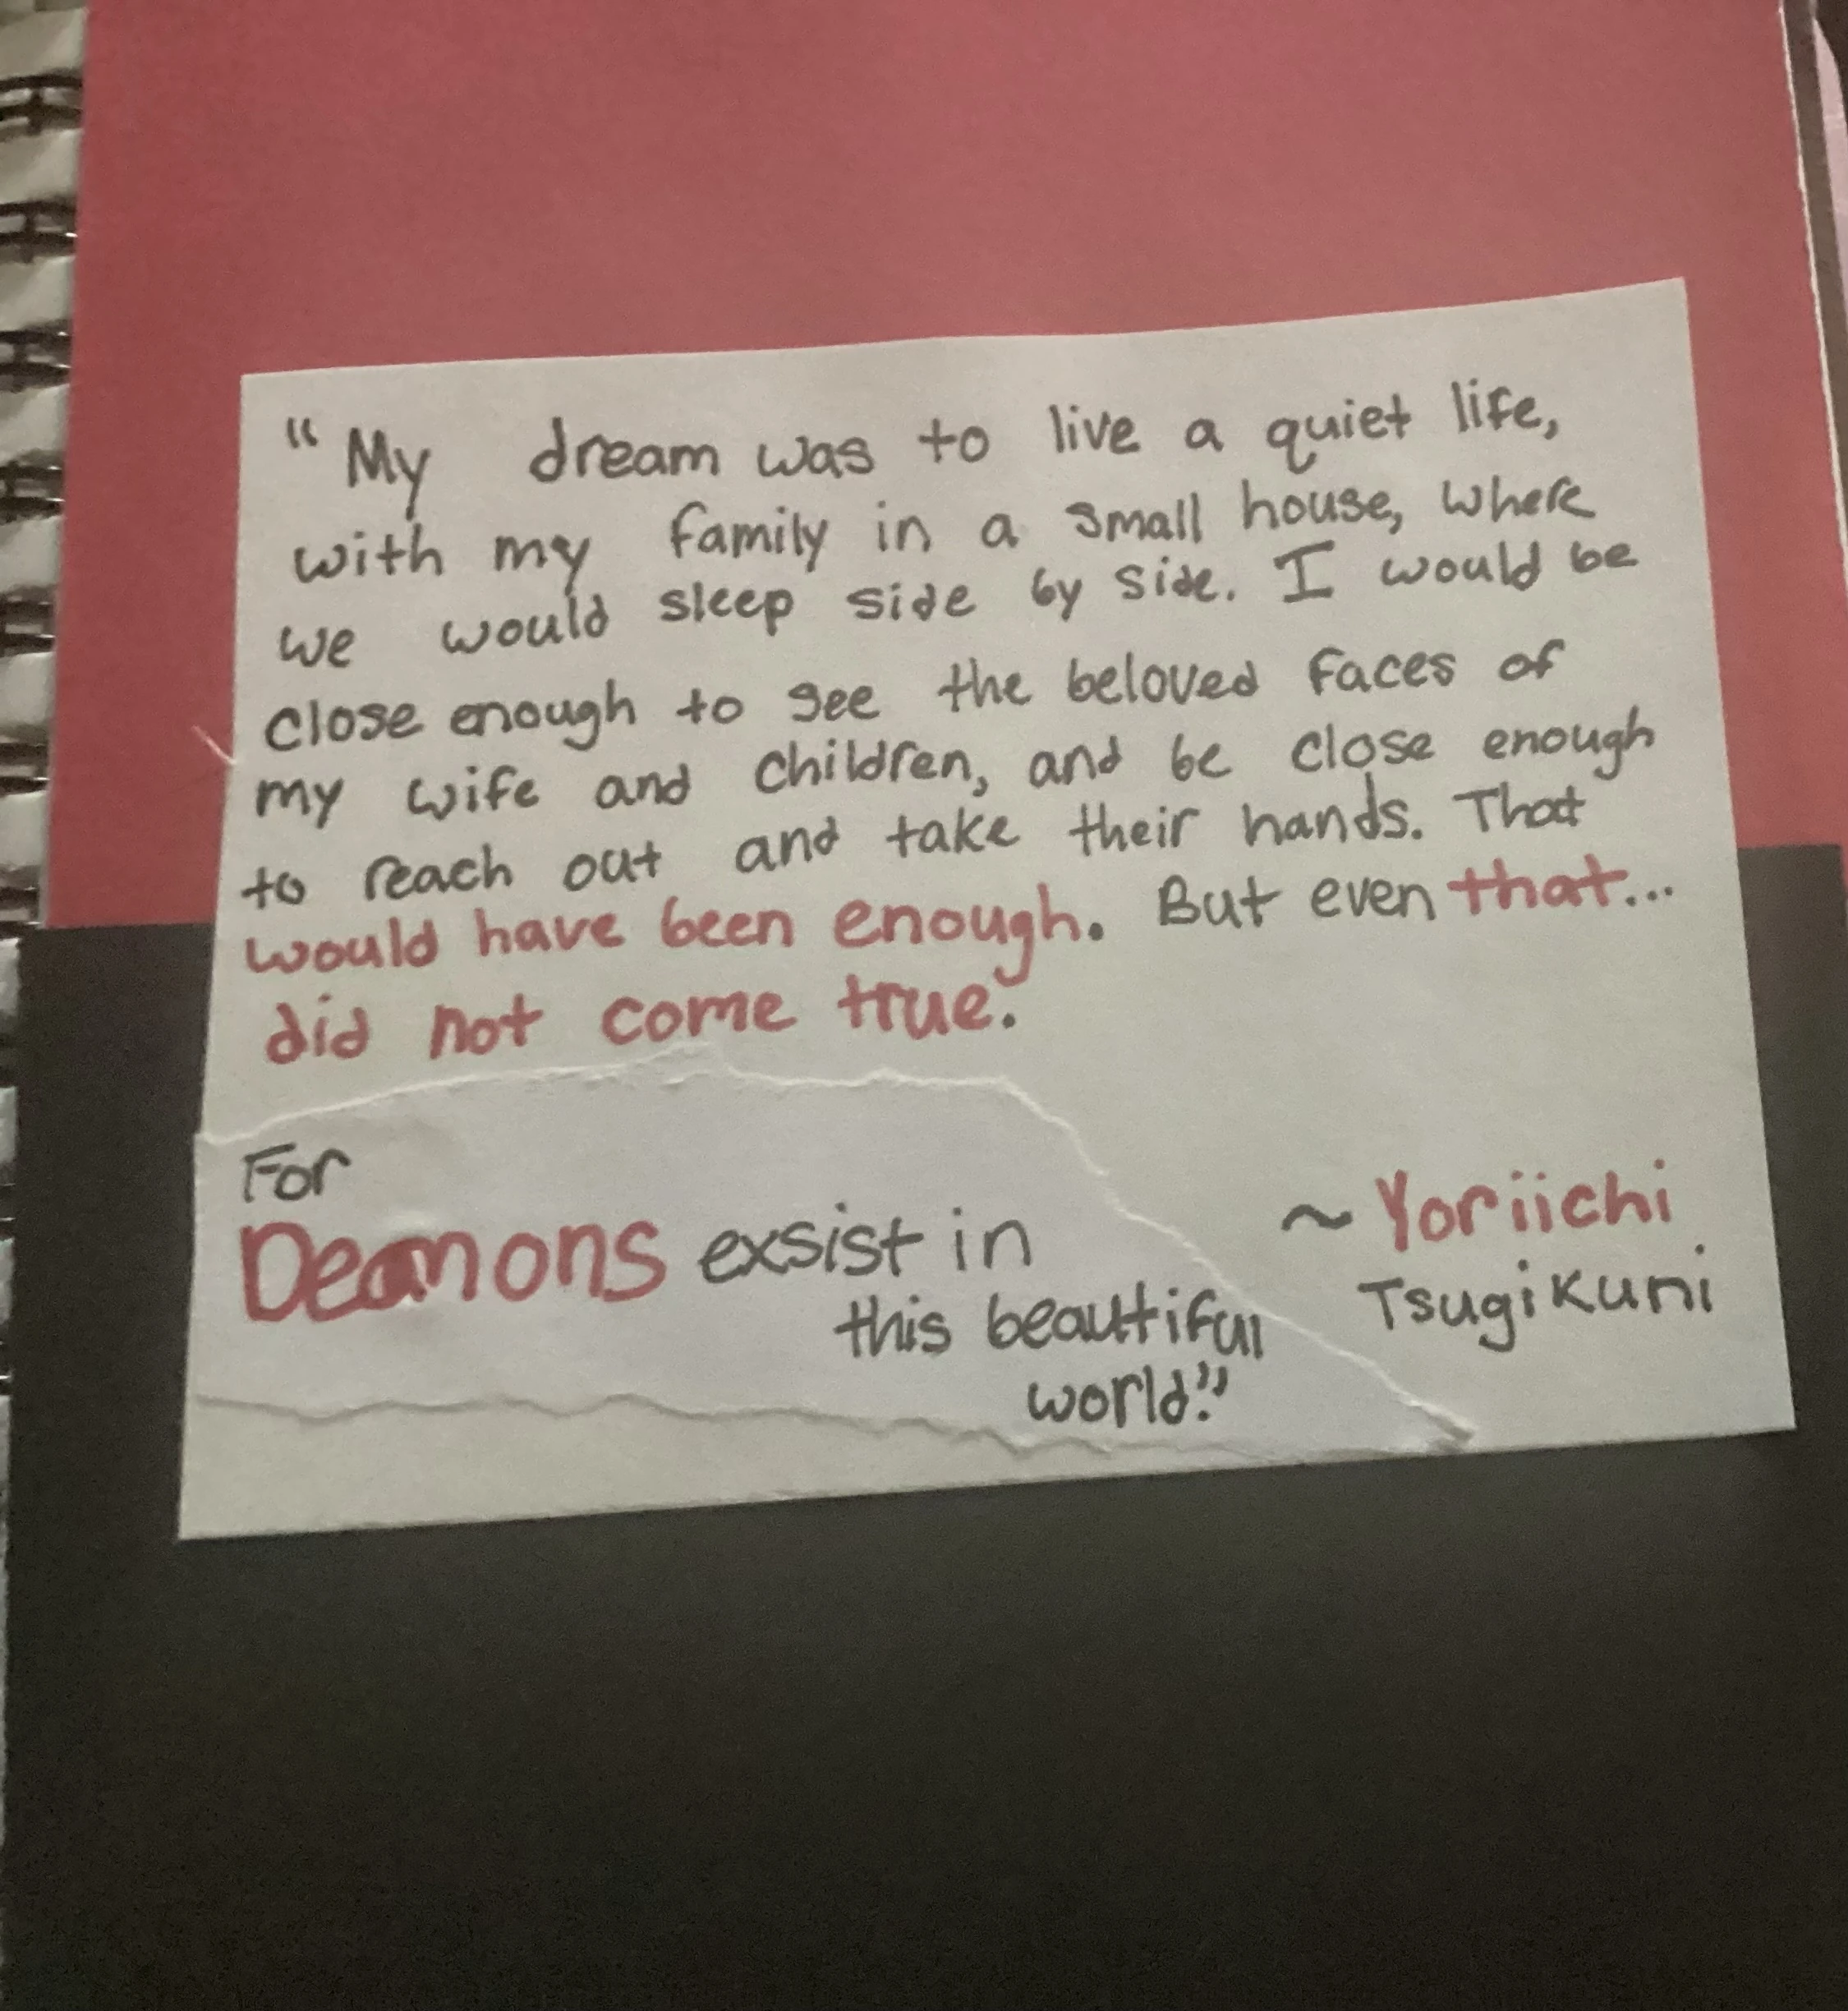 "My dream was to live a quiet life,
with my family in a small house, where
we would sleep side by side. I would be
close enough to see the beloved faces of
my wife and children, and be close enough
to reach out and take their hands. That
would have been enough. But even that...
did not come true.
For
Demons exsist in
this beautiful
world."
~ Yoriichi
Tsugikuni